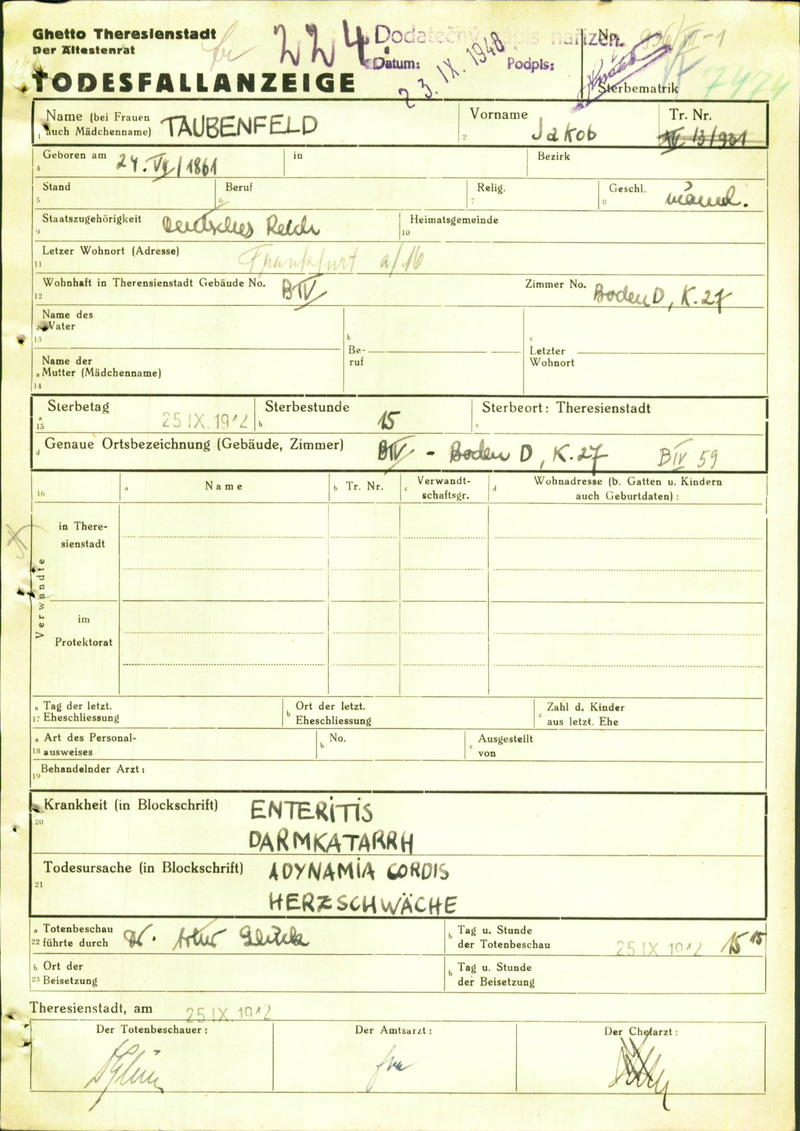 Ghetto Theresienstadt
Der Ältestenrat
224
Dodatečný zápis nařízen.
Datum: 23. IX. 1948 Podpis:
TODESFALLANZEIGE
Sterbematrik
7474
Name (bei Frauen auch Mädchenname) TAUBENFELD
1
Vorname Jakob
2
Tr. Nr.
Geboren am 24. VI/1861
4
in
Bezirk
Stand
5
Beruf
6
Relig.
7
Geschl. männl.
8
Staatszugehörigkeit Deutsches Reich
9
Heimatsgemeinde
10
Letzer Wohnort (Adresse) Frankfurt a/
11
Wohnhaft in Therensienstadt Gebäude No. BIV
12
Zimmer No. Boden D, K. 27
Name des Vater
13
Name der Mutter (Mädchenname)
14
b
Be-
ruf
c
Letzter
Wohnort
Sterbetag 25 IX. 1942
15
Sterbestunde 15
Sterbeort: Theresienstadt
Genaue Ortsbezeichnung (Gebäude, Zimmer) BIV - Boden D, K. 27 BIV 59
16
a Name
b Tr. Nr.
c Verwandt-
schaftsgr.
d Wohnadresse (b. Gatten u. Kindern
auch Geburtdaten):
Verwandte
in There-
sienstadt
im
Protektorat
a Tag der letzt.
17 Eheschliessung
b Ort der letzt.
Eheschliessung
c Zahl d. Kinder
aus letzt. Ehe
a Art des Personal-
18 ausweises
b No.
c Ausgestellt
von
Behandelnder Arzt:
19
Krankheit (in Blockschrift) ENTERITIS
20
DARMKATARRH
Todesursache (in Blockschrift) ADYNAMIA CORDIS
21
HERZSCHWÄCHE
a Totenbeschau
22 führte durch Dr. Artur
b Tag u. Stunde
der Totenbeschau 25 IX 1942 15 15
b Ort der
23 Beisetzung
b Tag u. Stunde
der Beisetzung
Theresienstadt, am 25 IX. 1942
Der Totenbeschauer:
Der Amtsarzt:
Der Chefarzt: